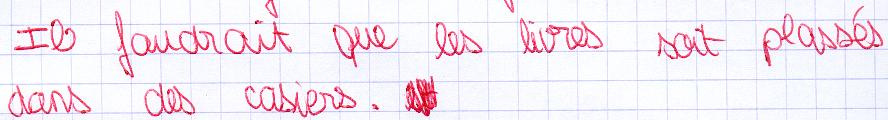 Il faudrait que les livres soit plassés
dans des casiers.